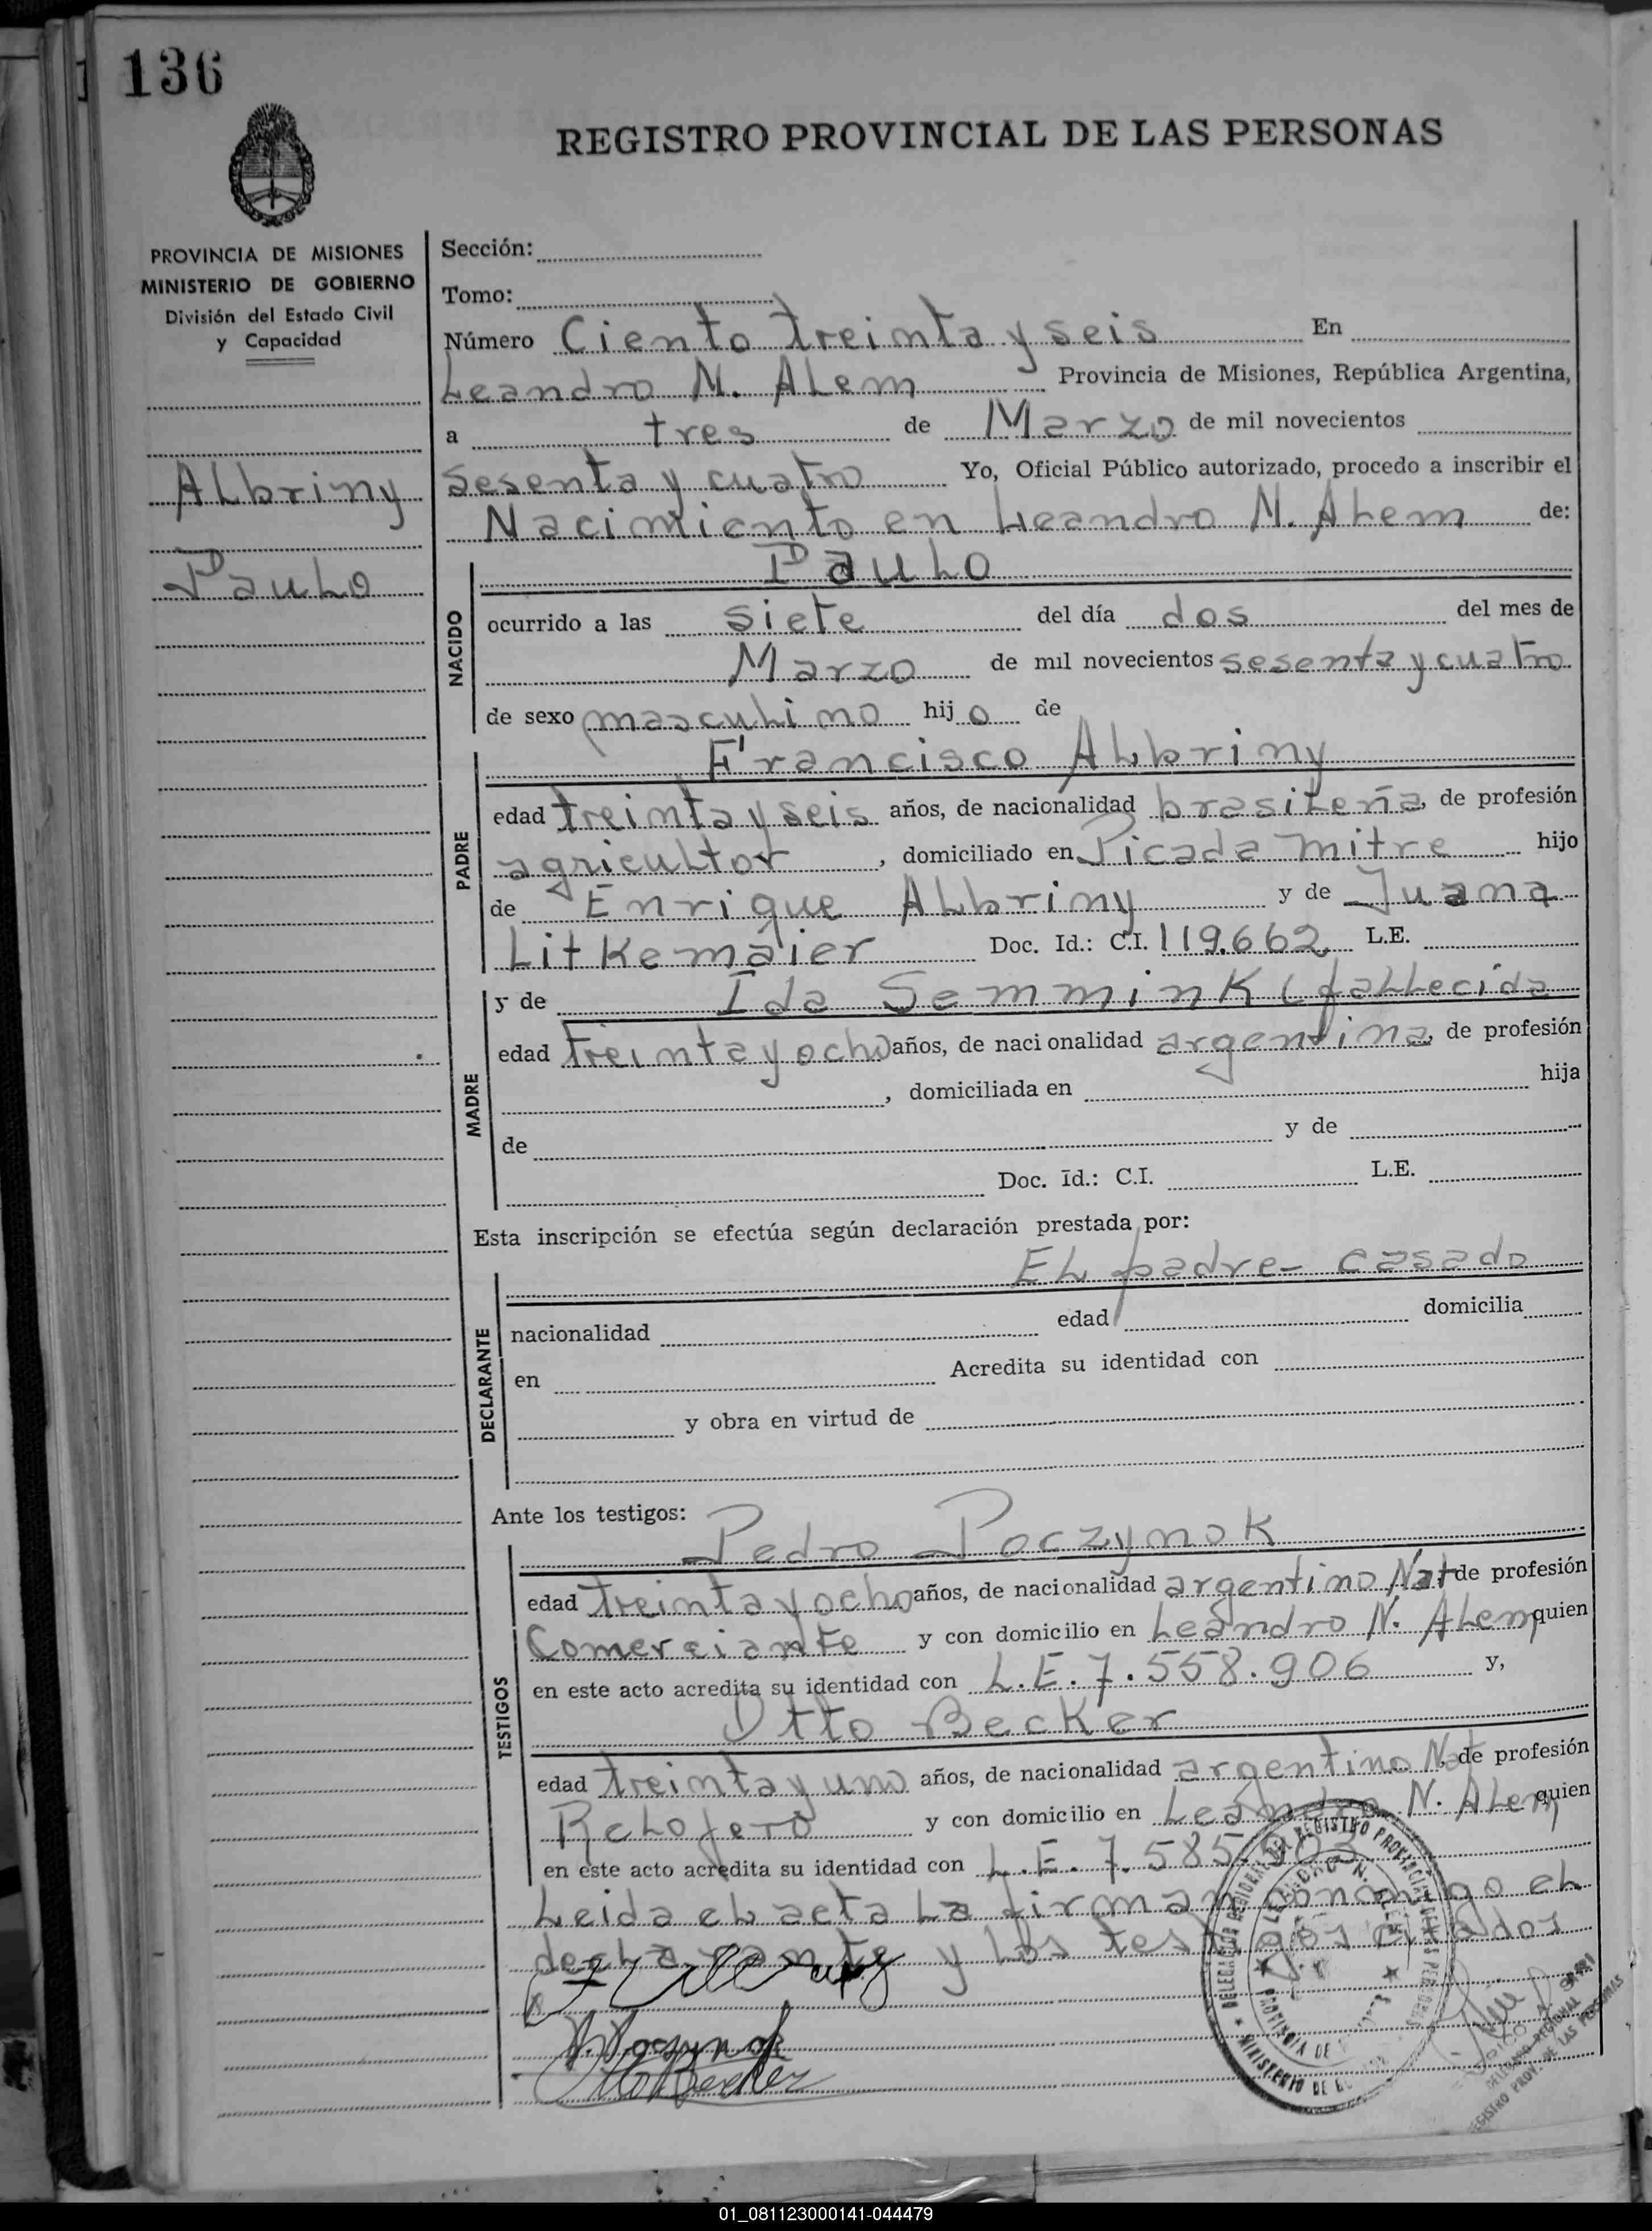 136
REGISTRO PROVINCIAL DE LAS PERSONAS
PROVINCIA DE MISIONES
MINISTERIO DE GOBIERNO
División del Estado Civil
y Capacidad
Albriny
Paulo
Sección:
Tomo:
Número Ciento treinta y seis En
Leandro N. Alem Provincia de Misiones, República Argentina,
a tres de Marzo de mil novecientos
sesenta y cuatro Yo, Oficial Público autorizado, procedo a inscribir el
Nacimiento en Leandro N. Alem de:
NACIDO
Paulo
ocurrido a las siete del día dos del mes de
Marzo de mil novecientos sesenta y cuatro
de sexo masculino hijo de
PADRE
Francisco Albriny
edad treinta y seis años, de nacionalidad brasileña, de profesión
agricultor, domiciliado en Picada Mitre hijo
de Enrique Albriny y de Juana
Litkemaier Doc. Id.: C.I. 119.662. L.E.
MADRE
y de Ida Semmink (fallecida
edad treinta y ocho años, de nacionalidad argentina, de profesión
, domiciliada en hija
de y de
Doc. Id.: C.I. L.E.
Esta inscripción se efectúa según declaración prestada por:
DECLARANTE
El padre - casado
nacionalidad edad domicilia
en Acredita su identidad con
y obra en virtud de
Ante los testigos:
TESTIGOS
Pedro Poczynok
edad treinta y ocho años, de nacionalidad argentino Nat de profesión
Comerciante y con domicilio en Leandro N. Alem quien
en este acto acredita su identidad con L.E. 7.558.906 y,
Otto Becker
edad treinta y uno años, de nacionalidad argentino Nat, de profesión
Relojero y con domicilio en Leandro N. Alem quien
en este acto acredita su identidad con L.E. 7.585.903
Leida el acta la firman conmigo el
declarante y los testigos citados
P. Poczynok
Otto Becker
REGISTRO PROVINCIAL DE LAS PERSONAS
LEANDRO N. ALEM
PROVINCIA DE
MINISTERIO DE
DELEGADO REGIONAL
REGISTRO PROV. DE LAS PERSONAS
01_081123000141-044479